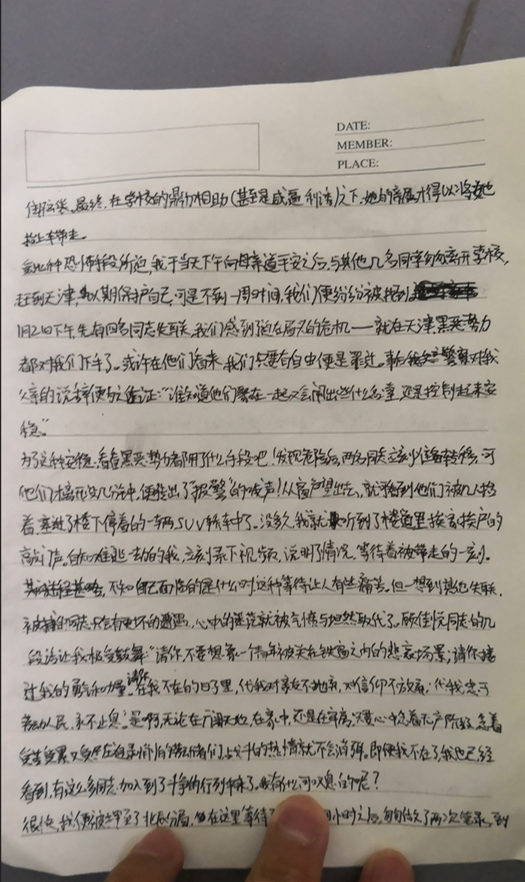 DATE:
MEMBER:
PLACE:
最终,在学校的鼎力相助(甚至是威逼利诱)之下,她的亲属才得以将她
拉上车带走。
恐怖手段所迫,我于当天下午向母亲道平安之后,与其他几名同学匆匆离开学校,
赶到天津,以期保护自己,可是不到一周时间,我们便纷纷被找到
1月2日下午先有四名同志失联,我们感到了危机——就在天津,黑恶势力
都对我们下手了。或许在他们看来,我们只要有自由便是罪过。事后警察对我
父亲的说辞便是印证:“谁知道他们聚在一起又会闹出些什么名堂,还是控制起来安
稳。”
为了这种安稳,看看黑恶势力都用了什么手段吧!发现危险后,两名同志立刻准备转移,可
他们才离开没几分钟,便传出了“报警”的喊声!从窗户望出去,就看到他们被几人挟
着,塞进了楼下停着的一辆SUV轿车中了。没多久,我就听到了楼道里挨家挨户的
敲门声。自知难逃一劫的我,立刻录下视频,说明了情况,等待着被带走的一刻。
不知自己面临的是什么时,这种等待让人有些痛苦。但一想到其他失联、
被捕的同志只会有更坏的遭遇,心中的迷茫就被气愤与坦然取代了。顾佳悦同志的几
段话让我极受鼓舞:“请你,不要想象一个青年被关在铁窗之内的悲哀场景;请你接
过我的勇气和力量,请你在我不在的日子里,代我对亲友不抛弃,对信仰不放弃;代我忠
人民,永不止息”是啊,无论在广阔天地,在家中,还是在牢房,只要心中念着无产阶级,念着
受苦受累的,上斗的热情就不会消弭。即使我不在了,我也已经
看到,有这么多同志加入到了斗争的行列中来了,我有什么可叹息的呢?
很快,我们便被押至了北辰分局,在这里等待了小时之后,匆匆做了两次笔录,到